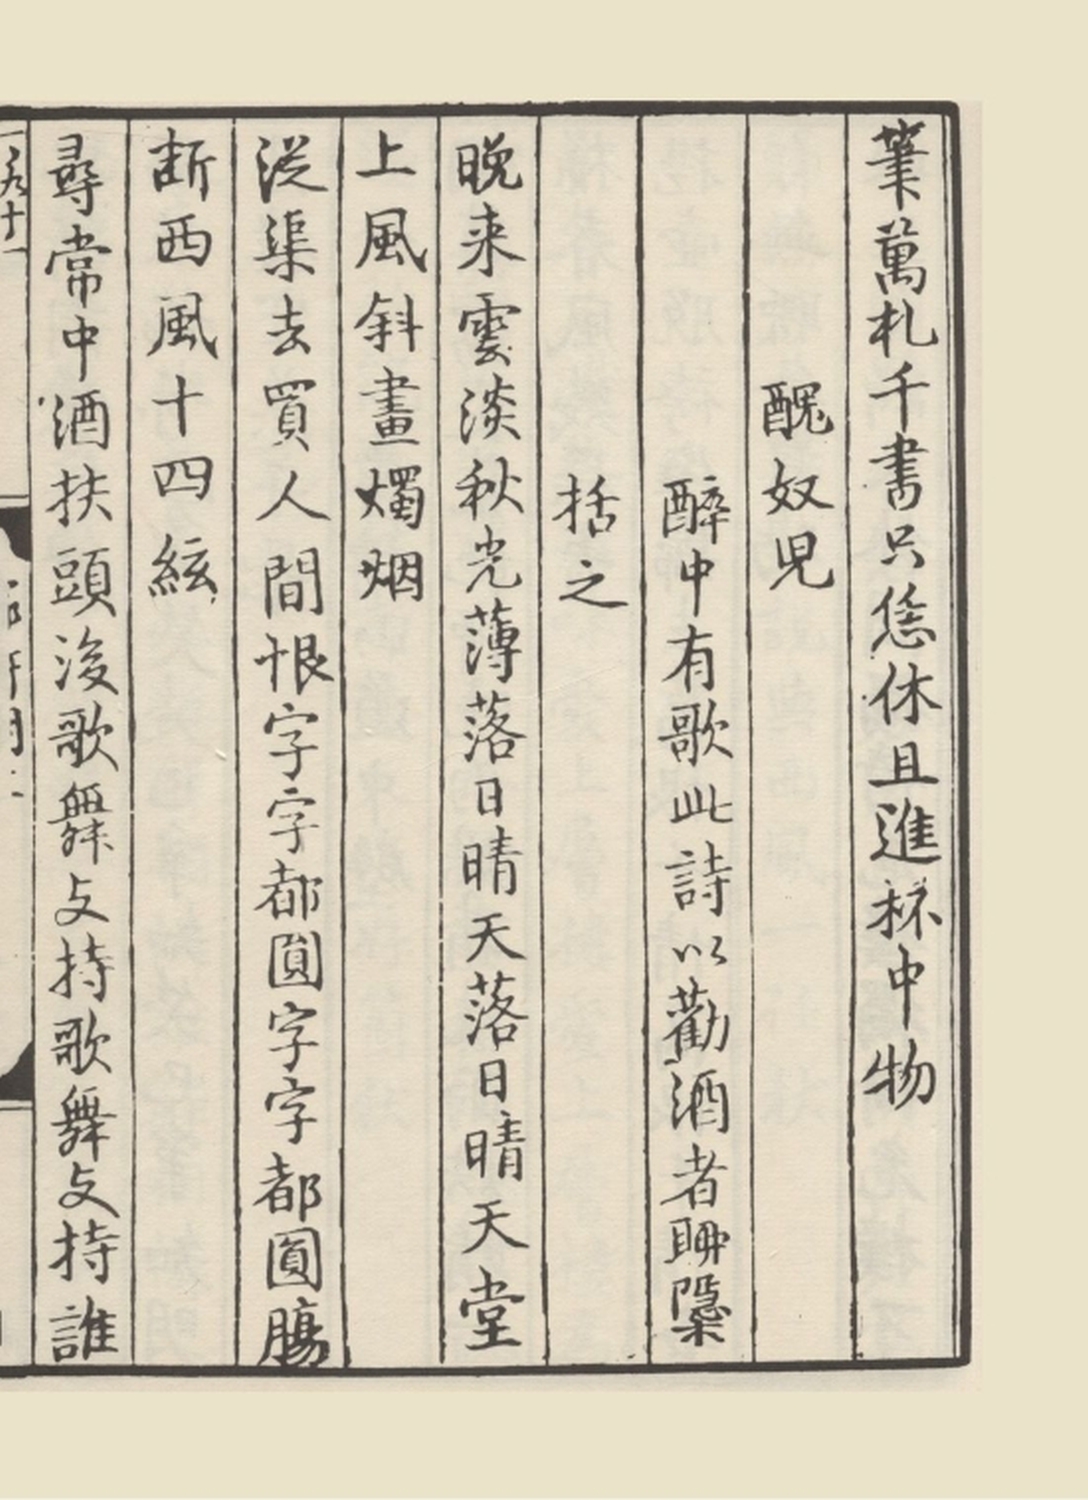 筆萬札千書只恁休且進杯中物
醜奴児
醉中有歌此詩以勸酒者聊檃
括之
晩来雲淡秋光薄落日晴天落日晴天堂
上風斜畫燭烟
從渠去買人間恨字字都圓字字都圓腸
断西風十四絃
尋常中酒扶頭後歌舞支持歌舞支持誰